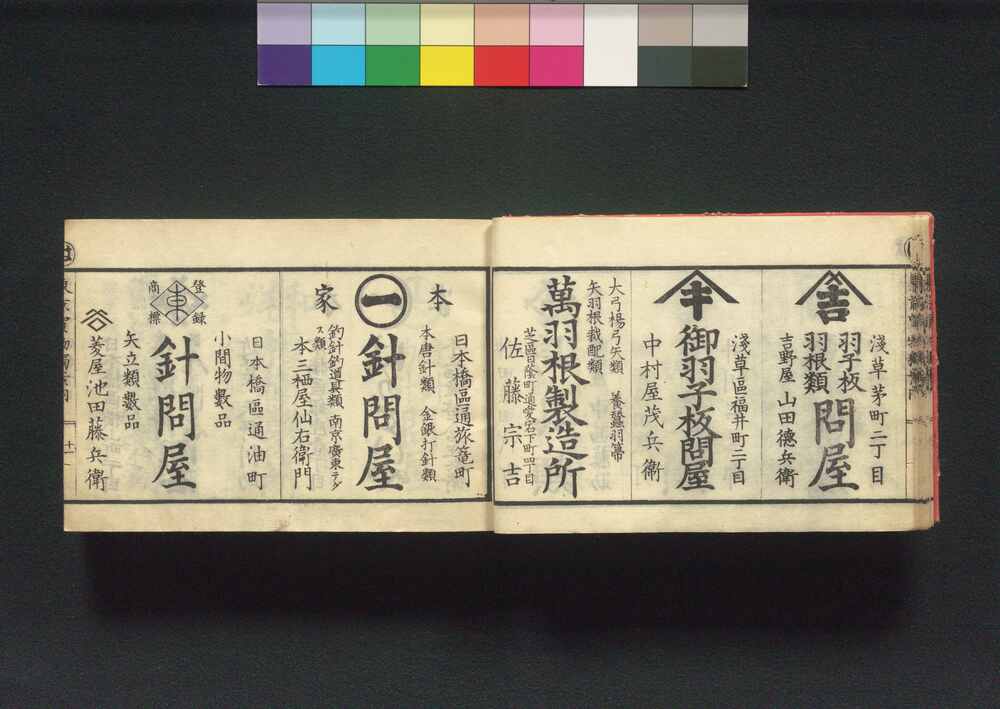 淺草茅町二丁目
吉
羽子板
羽根類
問屋
吉野屋 山田德兵衛
淺草區福井町二丁目
キ
御羽子板問屋
中村屋茂兵衞
大弓楊弓矢類 養蠶羽箒
矢羽根裁配類
萬羽根製造所
芝區日蔭町通愛宕下町四丁目
佐藤宗吉
日本橋區通旅篭町
本家
本唐針類 金銀打針類
一
針問屋
釣針釣道具類 南京廣東テグス類
本三栖屋仙右衛門
日本橋區通油町
小間物數品
登録
商標
東
針問屋
矢立類數品
菱屋池田藤兵衛